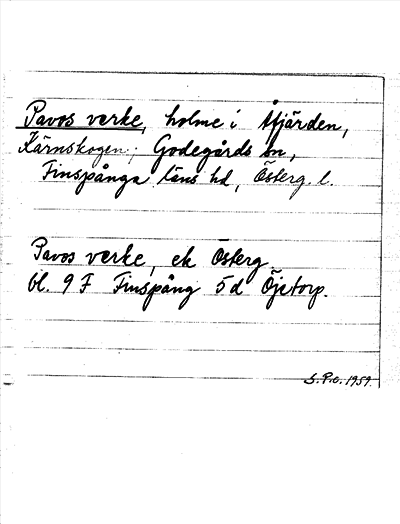 Pavos verke, holme i Åfjärden,
Kärnskogen, Godegårds sn,
Finspånga läns hd, Österg. l.
Pavos verke, ek Österg
bl. 9 F Finspång 5 d Öjetorp.
S.P.o. 1959.